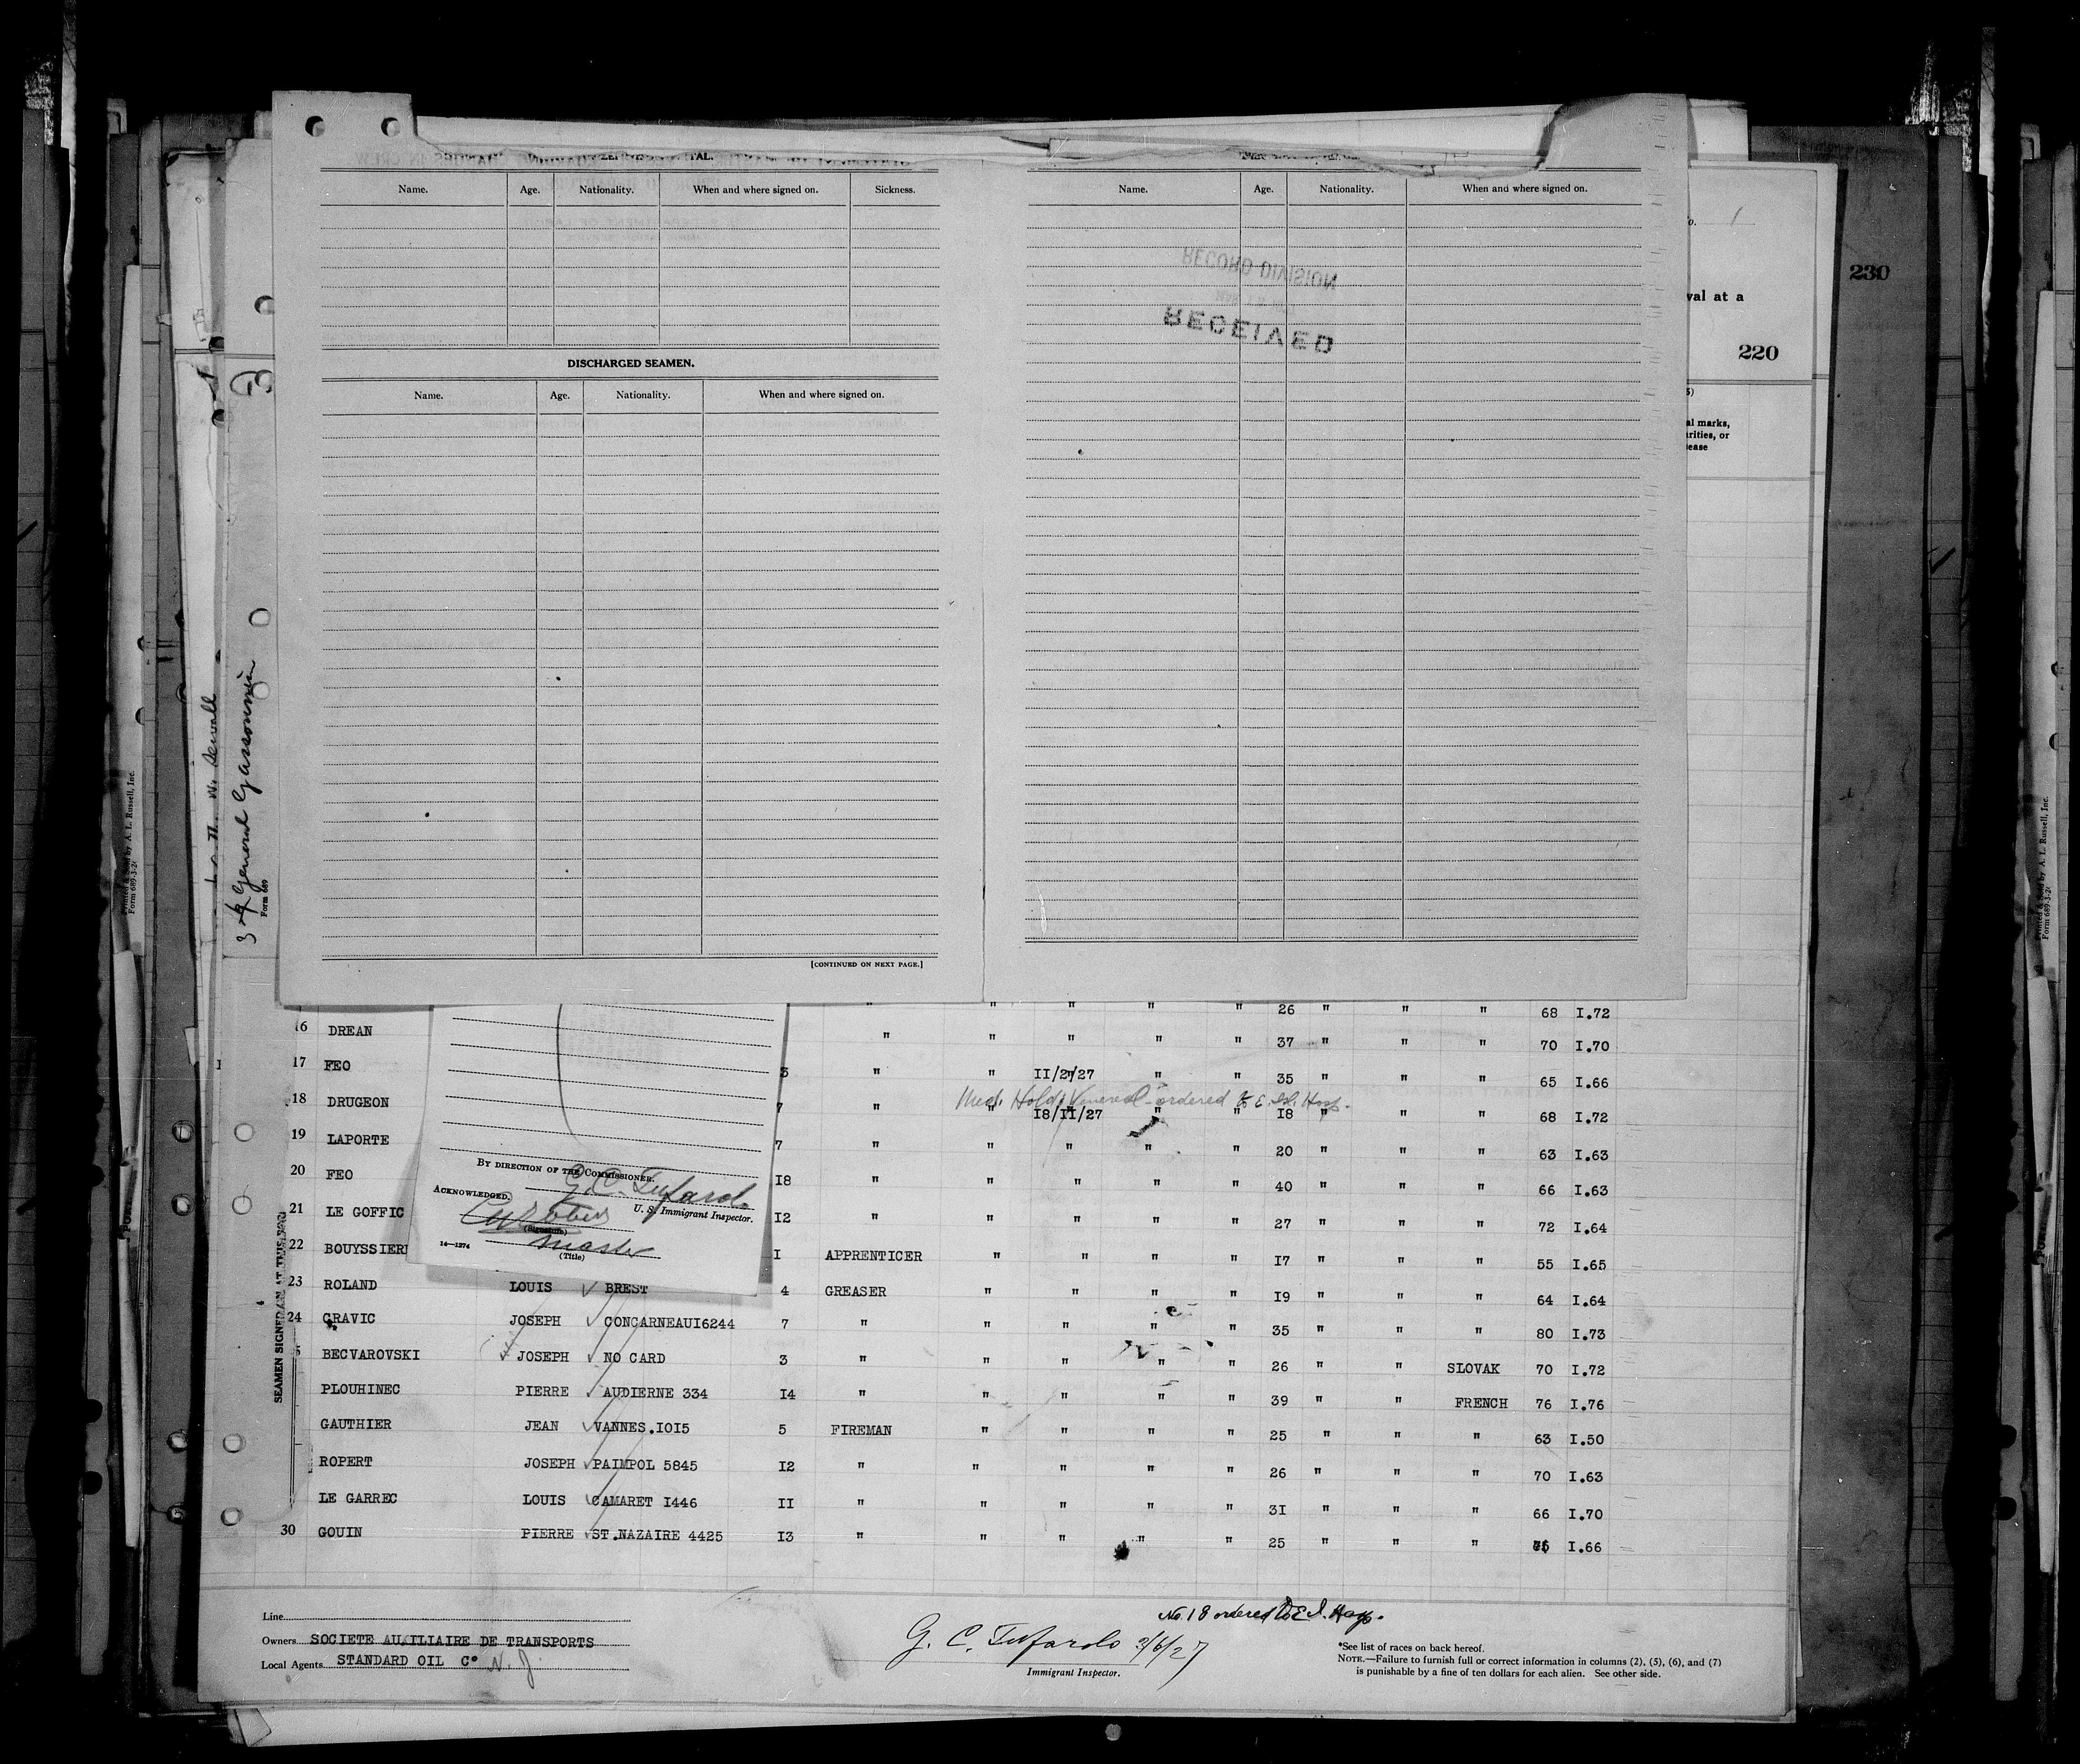 Name. Age. Nationality. When and where signed on. Sickness.
DISCHARGED SEAMEN.
Name. Age. Nationality. When and where signed on.
[CONTINUED ON NEXT PAGE.]
Name. Age. Nationality. When and where signed on.
RECORD DIVISION
RECEIVED
1
230
val at a
220
al marks,
rities, or
ease
Printed & Sold by A. L. Russell, Inc.
Form 689
3
General
SEAMEN SIGNED
" " " " " 26 " " " 68 I.72
16 DREAN " " " " " 37 " " " 70 I.70
17 FEO 3 " " II/2/27 " " 35 " " " 65 I.66
Med. Hold Venereal - ordered to E. Isl. Hosp.
18 DRUGEON 7 " " 18/II/27 " " I8 " " " 68 I.72
19 LAPORTE 7 " " " " " 20 " " " 63 I.63
20 FEO I8 " " " " " 40 " " " 66 I.63
21 LE GOFFIC I2 " " " " " 27 " " " 72 I.64
22 BOUYSSIER I APPRENTICER " " " " I7 " " " 55 I.65
23 ROLAND LOUIS BREST 4 GREASER " " " " I9 " " " 64 I.64
24 GRAVIC JOSEPH CONCARNEAUI6244 7 " " " " " 35 " " " 80 I.73
BECVAROVSKI JOSEPH NO CARD 3 " " " " " 26 " " SLOVAK 70 I.72
PLOUHINEC PIERRE AUDIERNE 334 I4 " " " " " 39 " " FRENCH 76 I.76
GAUTHIER JEAN VANNES.IOI5 5 FIREMAN " " " " 25 " " " 63 I.50
ROPERT JOSEPH PAIMPOL 5845 I2 " " " " " 26 " " " 70 I.63
LE GARREC LOUIS CAMARET I446 II " " " " " 3I " " " 66 I.70
30 GOUIN PIERRE ST.NAZAIRE 4425 I3 " " " " " 25 " " " I.66
BY DIRECTION OF THE COMMISSIONER.
G. C. Tufarolo
U. S. Immigrant Inspector.
ACKNOWLEDGED.
(Signature)
Master
(Title)
14—1274
Line
Owners SOCIETE AUXILIAIRE DE TRANSPORTS
Local Agents STANDARD OIL Co N. J.
No. 18 ordered to E. I. Hosp.
G. C. Tufarolo
Immigrant Inspector.
*See list of races on back hereof.
NOTE.—Failure to furnish full or correct information in columns (2), (5), (6), and (7)
is punishable by a fine of ten dollars for each alien. See other side.